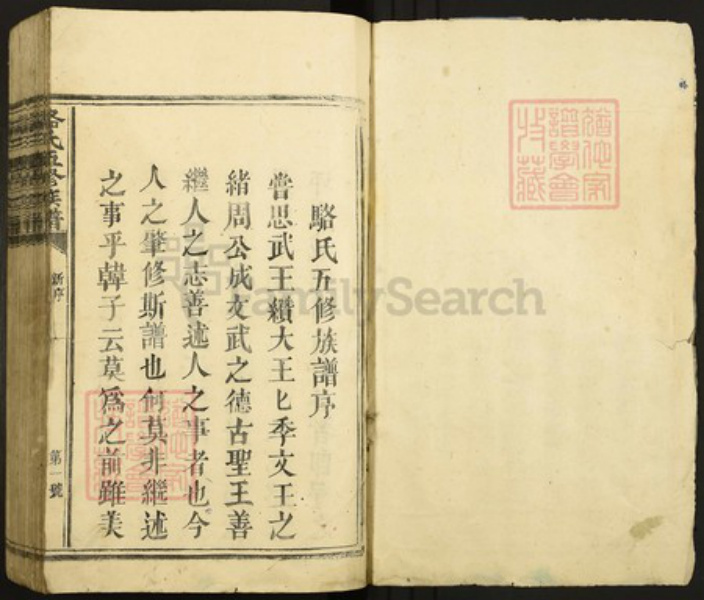 駱氏五修族譜序
嘗思武王纘大王王季文王之
緒周公成文武之德古聖王善
繼人之志善述人之事者也今
人之肇修斯譜也何莫非繼述
之事乎韓子云莫為之前雖美
駱氏五修族譜
新序
第一號
譜學會
收藏
FamilySearch